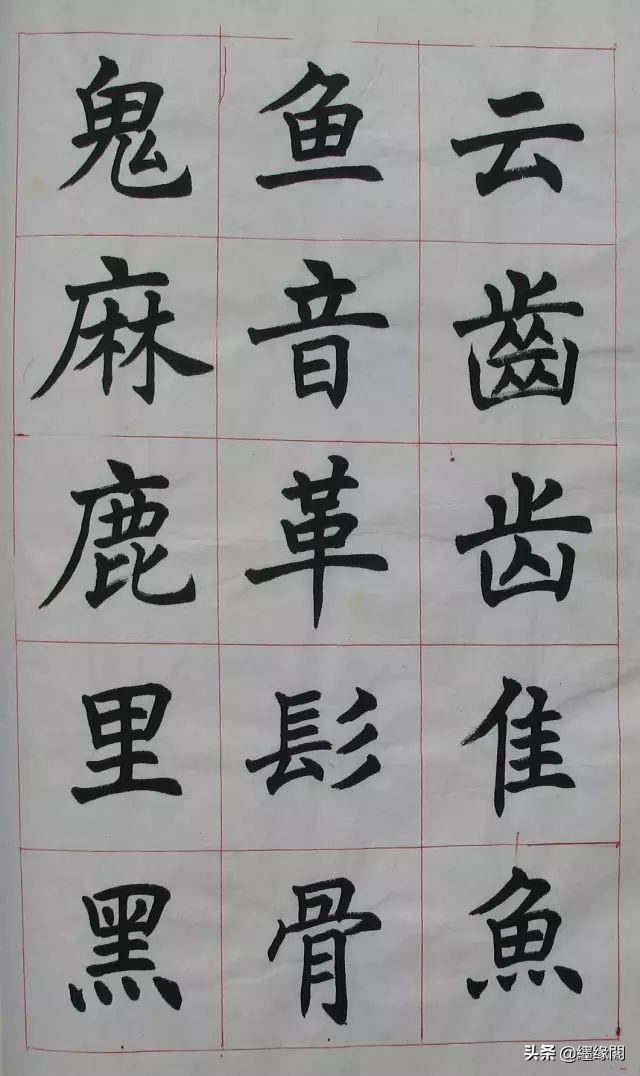 云齒齿隹魚
鱼音革髟骨
鬼麻鹿里黑
头条